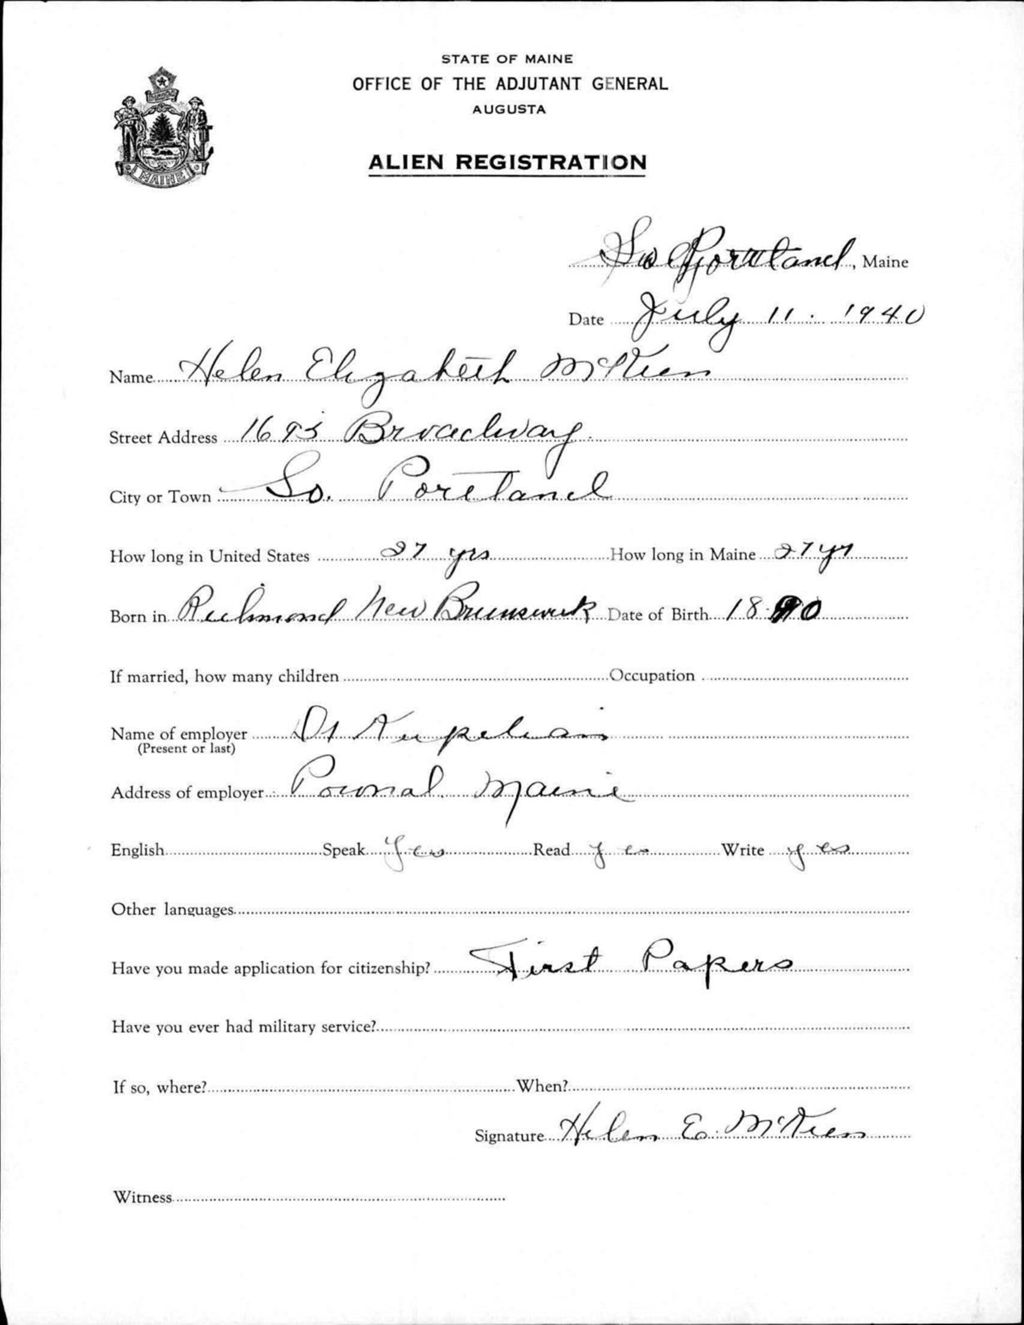 STATE OF MAINE
OFFICE OF THE ADJUTANT GENERAL
AUGUSTA
MAINE
ALIEN REGISTRATION
So Portland, Maine
Date July 11. 1940
Name Helen Elizabeth McKien
Street Address Broadway.
City or Town So. Portland
How long in United States 27 yrs How long in Maine 27 yr
Born in Richmond New Brunswick Date of Birth
If married, how many children Occupation
Name of employer Dr Kupelian
(Present or last)
Address of employer Pownal Maine
English Speak Yes Read yes Write yes
Other languages
Have you made application for citizenship? First Papers
Have you ever had military service?
If so, where? When?
Signature Helen E. McKien
Witness